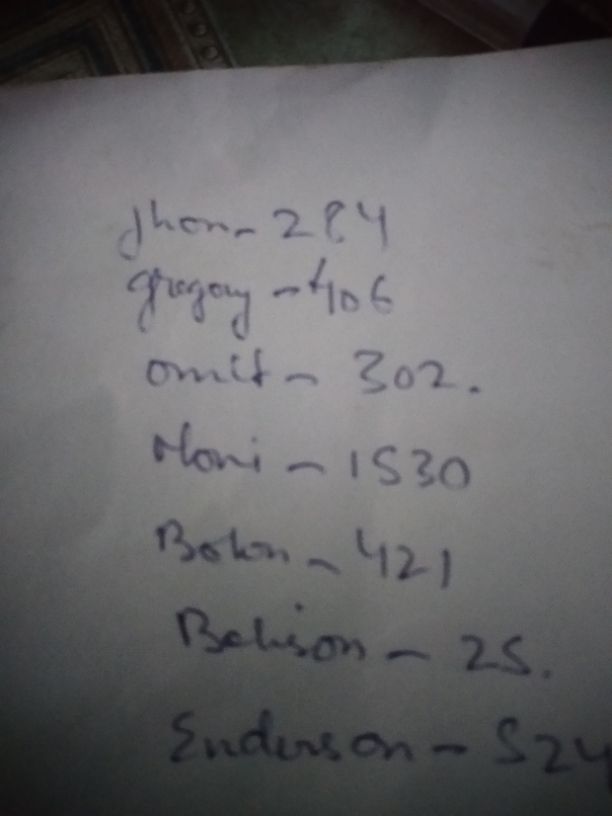 Jhon - 284
gregory - 406
omit - 302.
Moni - 1530
Boton - 421
Belison - 25.
Enderson - 524